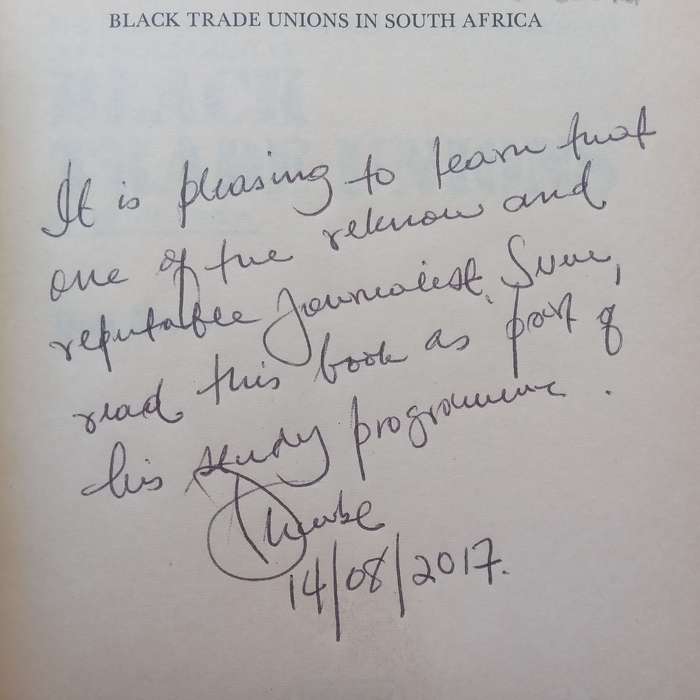 BLACK TRADE UNIONS IN SOUTH AFRICA
It is pleasing to learn that
one of the reknow and
reputable journalist,
read this book as part of
his study programme.
14/08/2017.